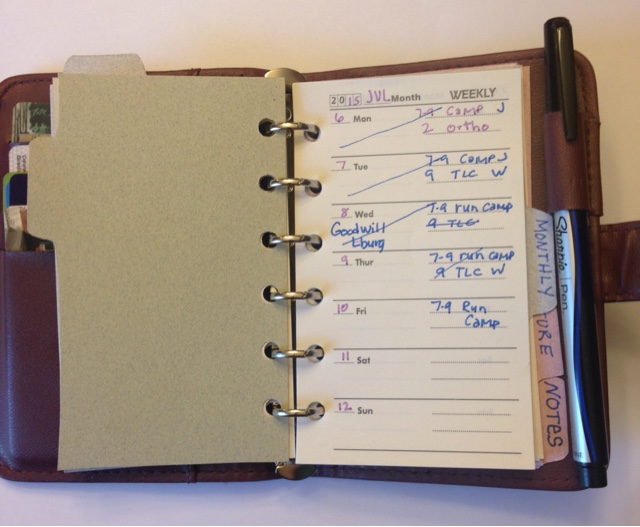 2015 JUL Month WEEKLY
6 Mon 7-9 Camp J
2 ortho
7 Tue 7-9 Camp J
9 TLC W
8 Wed 7-9 run camp
Goodwill 9 TLC
Lburg
9 Thur 7-9 run camp
9 TLC W
10 Fri 7-9 Run
Camp
11 Sat
12 Sun
MONTHLY
URE
NOTES
Sharpie Pen